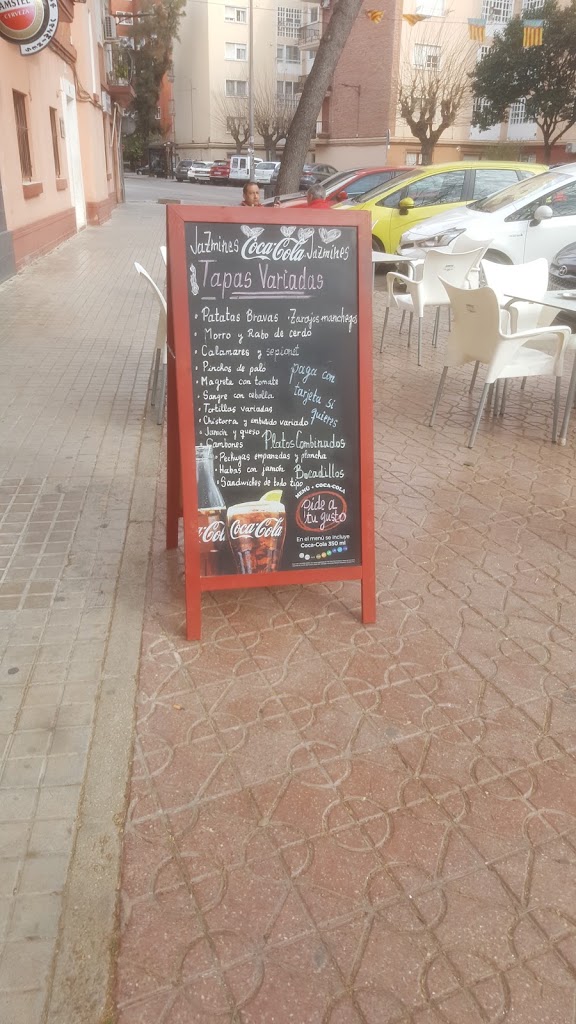 AMSTEL
CERVEZA
JaZmines Coca-Cola JaZmines
Tapas Variadas
• Patatas Bravas Zarajos manchegos
• Morro y Rabo de cerdo
• Calamares y sepionet
• Pinchos de pollo
• Magreta con tomate
• Sangre con cebolla
• Tortillas variadas
• Chistorra y embutido variado
• Jamon y queso
• Gambones
paga con
tarjeta si
quieres
Platos Combinados
• Pechugas empanadas y plancha
• Habas con jamon Bocadillos
• Sandwiches de todo tipo
MENÚ • COCA-COLA
Pide a
tu gusto
En el menú se incluye
Coca-Cola 350 ml
Coca-Cola